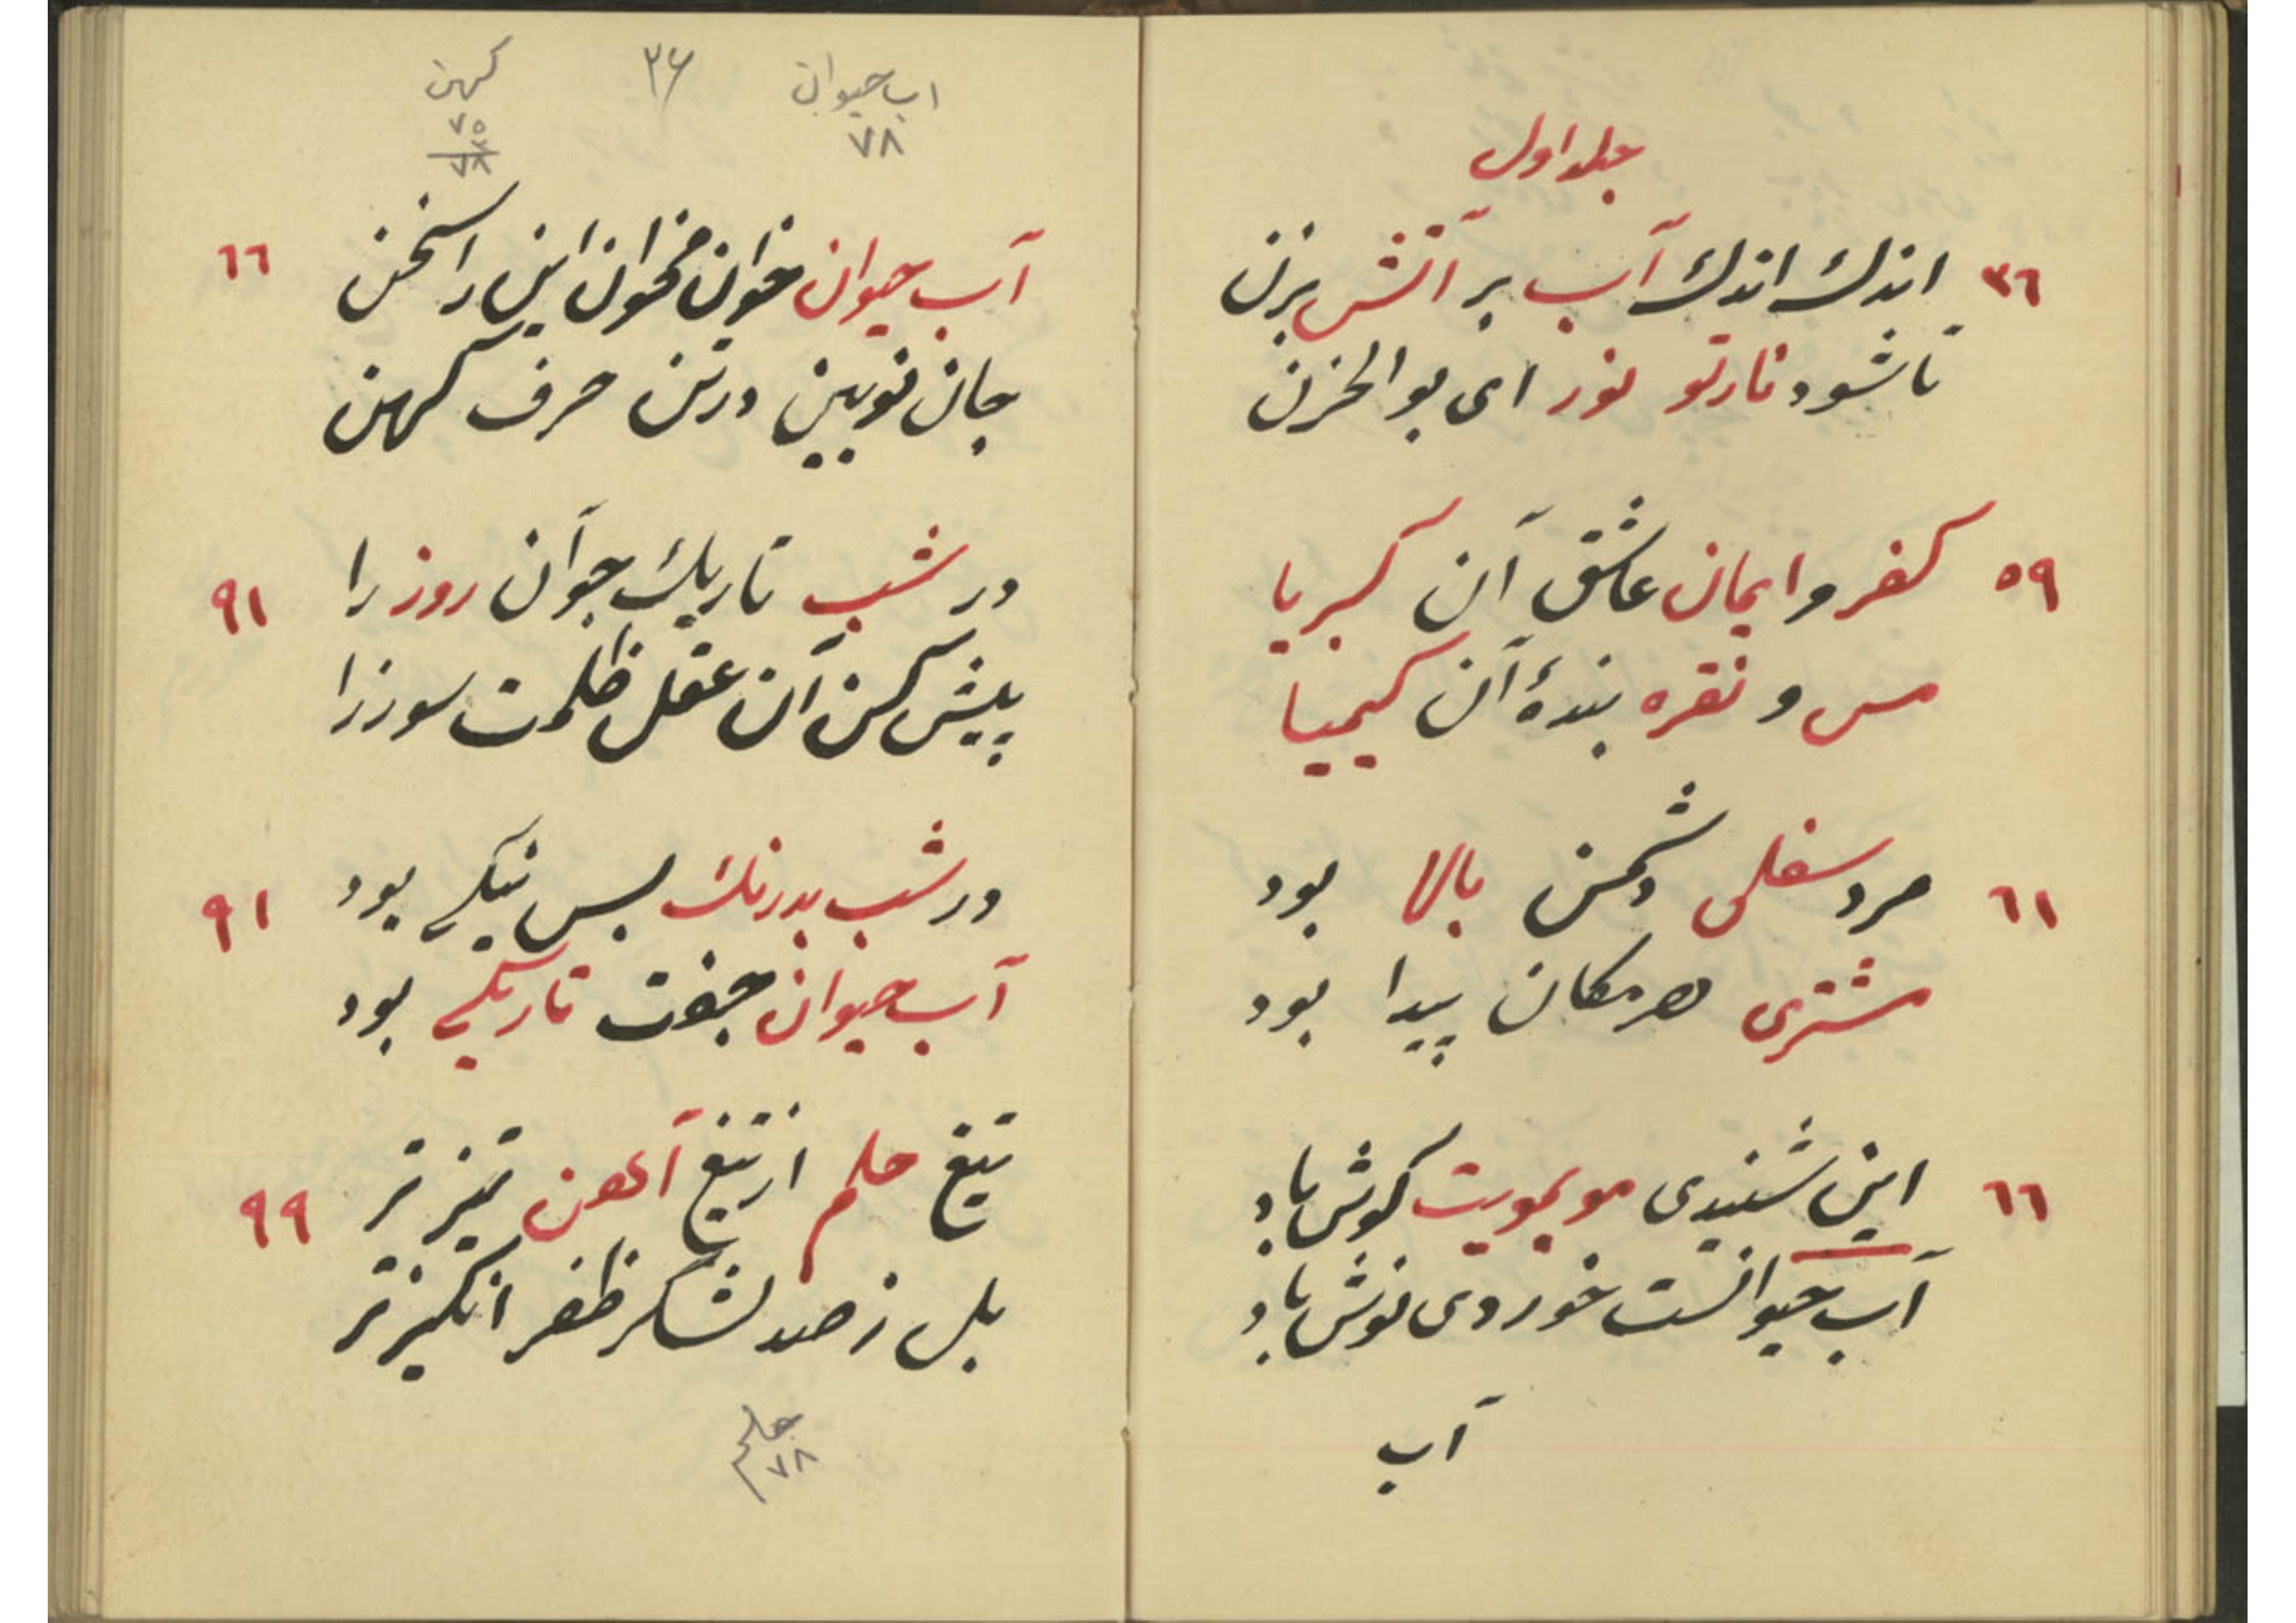 جلد اول
٣٦ اندك اندك آب بر آتش بزن
تا شود نار تو نور ای بو الحزن
٥٩ کفر و ایمان عاشق آن کبریا
مس و نقره بندهٔ آن کیمیا
٦١ مرد سفلی دشمن بالا بود
مشتری هر مکان پیدا بود
٦٦ این شنیدی مو بمویت کوش باد
آب حیوانست خوردی نوش باد
آب
اب حیوان ٣۶ کهن
٧٨
٧٥
٧٨
آب حیوان خوان مخوان این را سخن ٦٦
جان نو بین در تن حرف کهن
در شب تاریك جو آن روز را ٩١
پیش کن آن عقل ظلمت سوز را
در شب بدرنك بس نیکی بود ٩١
آب حیوان جفت تاریکی بود
تیغ حلم از تیغ آهن تیز تر ٩٩
بل ز صد لشکر ظفر انکیز تر
حلم
٧٨